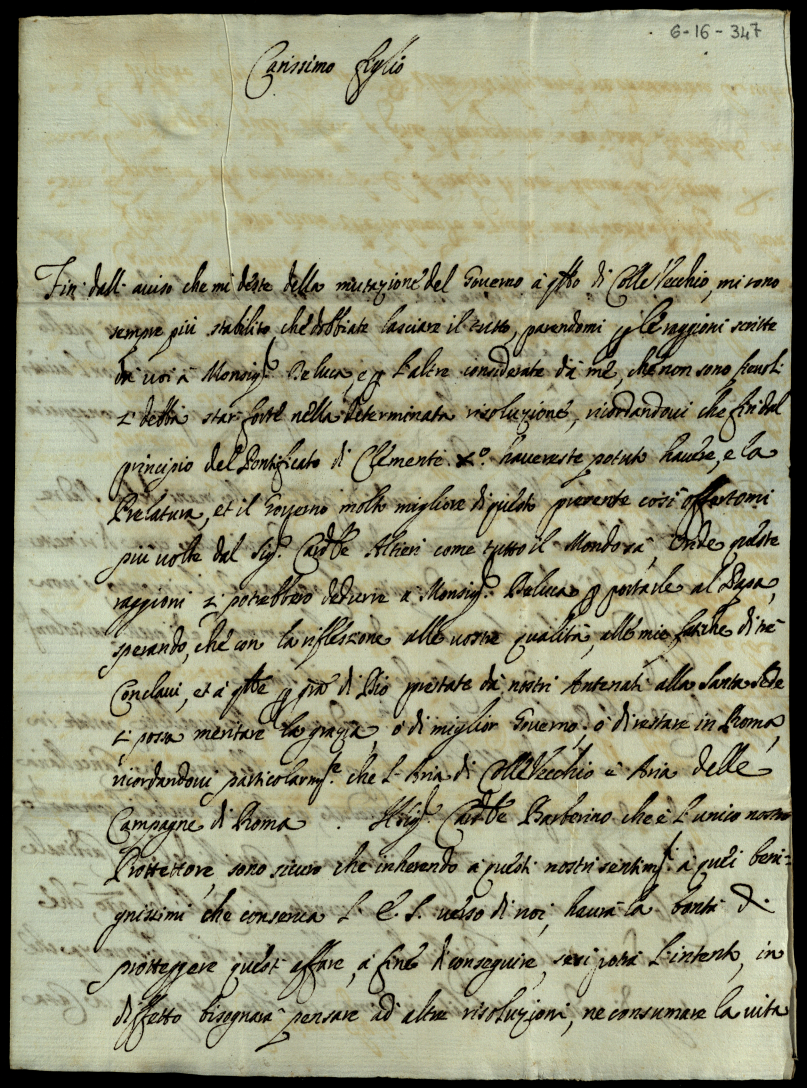 6-16-347
Carissimo figlio
Fin' dall' aviso che mi deste della mutazione del Governo à qsto di Colle Vecchio, mi sono
sempre più stabilito che dobbiate lasciare il tutto, parendomi p le raggioni scritte
da voi à Monsigr. Deluca, e p l'altre considerate da me, che non sono frivoli
si debba star forte nella determinata risoluzione, ricordandovi che fin dal
principio del Pontificato di Clemente Xo. havereste potuto havere, e la
Prelatura, et il Governo molto migliore di questo presente così offertomi
più volte dal Sigr. Cardle Altieri come tutto il Mondo sà, Onde queste
raggioni si potrebbero dedurre à Monsigr. Deluca p portarle al Papa,
sperando, che con la riflessione alle vostre qualità, alle mie fatiche di tre
Conclavi, et à qlle p gra di Dio prestate dà nostri Antenati alla Santa Sede
si possa meritare la grazia, ò di miglior Governo, ò di restare in Roma,
ricordandovi particolarmte. che l'Aria di Colle Vecchio è Aria delle
Campagne di Roma. Il Sigr. Cardle Barberino che è l'unico nostro
Prottettore, sono sicuro che inherendo à questi nostri sentimti à quei beni-
gnissimi che conserva L' E. S. verso di noi, haverà la bontà di
prottegere quest' affare, à fine di conseguire, se si potrà l'intento, in
diffetto bisognerà pensare ad altre risoluzioni, ne consumare la vita